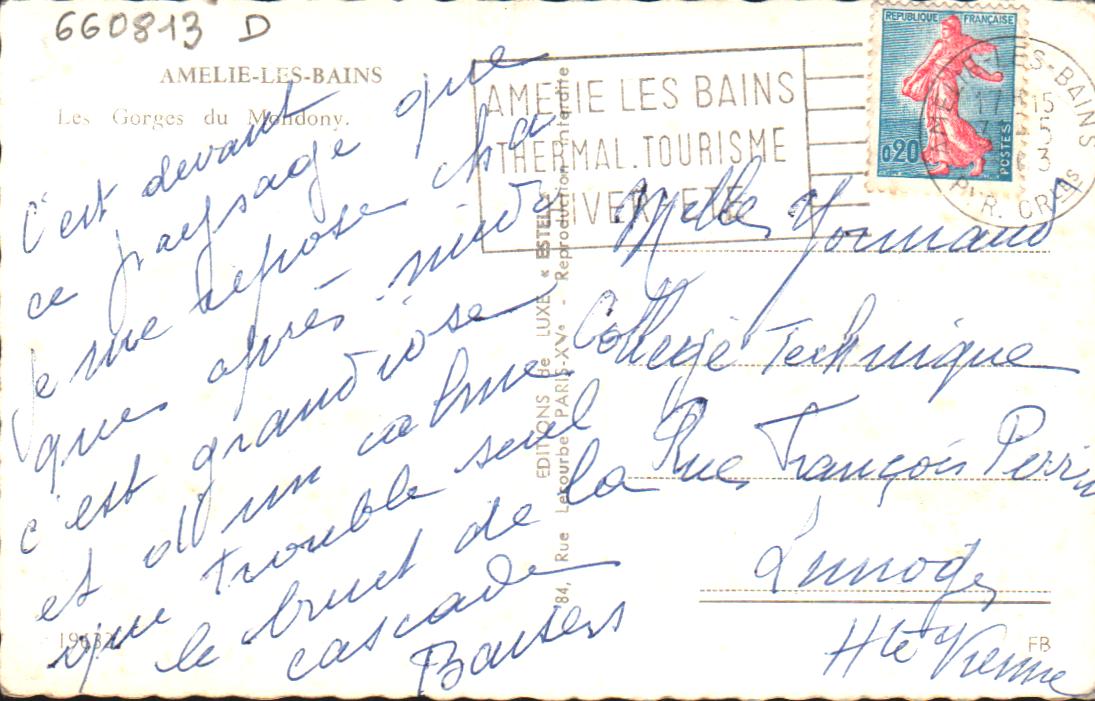 660813 D
AMELIE-LES-BAINS
Les Gorges du Mondony.
C'est devant
ce paysage que
je me repose cha
ques après midi
c'est grandiose
et d'un calme
que trouble seul
le bruit de la
cascade
Baisers
19632
EDITIONS de LUXE « ESTEL »
84, Rue Lecourbe PARIS-XVe - Reproduction interdite
AMELIE LES BAINS
THERMAL. TOURISME
HIVER ETE
REPUBLIQUE FRANÇAISE
0,20
POSTES
AMELIE-LES-BAINS
17 H 15
PYR. ORles
Melle Normand
Collège Technique
Rue François Perrin
Limoges
Hte Vienne
FB